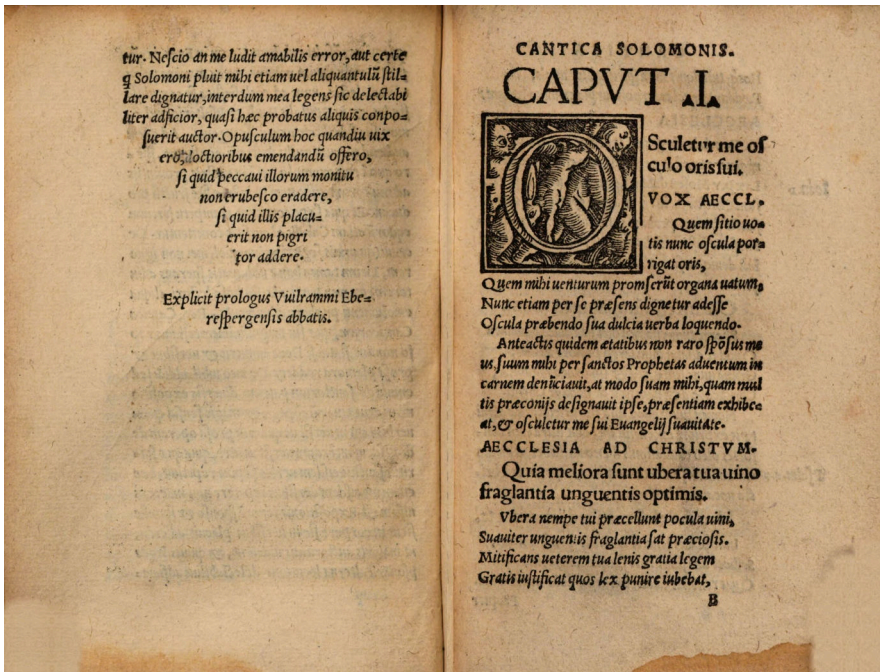 tur. Nescio an me ludit amabilis error, aut certe
q Solomoni pluit mihi etiam uel aliquantulũ stil=
lare dignatur, interdum mea legens sic delectabi
liter adficior, quasi hæc probatus aliquis conpo=
suerit auctor. Opusculum hoc quandiu uix
ero, doctioribus emendandũ offero,
si quid peccaui illorum monitu
non erubesco eradere,
si quid illis placu=
erit non pigri
tor addere.
Explicit prologus Vuilrammi Ebe=
respergensis abbatis.
CANTICA SOLOMONIS.
CAPVT .I.
OSculetur me os
culo oris sui.
VOX AECCL.
Quem sitio uo=
tis nunc oscula por=
rigat oris,
Quem mihi uenturum promserũt organa uatum,
Nunc etiam per se præsens dignetur adesse
Oscula præbendo sua dulcia uerba loquendo.
Anteactis quidem ætatibus non raro spõsus me
us, suum mihi per sanctos Prophetas aduentum in
carnem denũciauit, at modo suam mihi, quam mul
tis præconijs designauit ipse, præsentiam exhibe=
at, & osculetur me sui Euangelij suauitate.
AECCLESIA AD CHRISTVM.
Quia meliora sunt ubera tua uino
fraglantia unguentis optimis.
Vbera nempe tui præcellunt pocula uini,
Suauiter unguentis fraglantia sat præciosis.
Mitificans ueterem tua lenis gratia legem
Gratis iustificat quos lex punire iubebat,
B